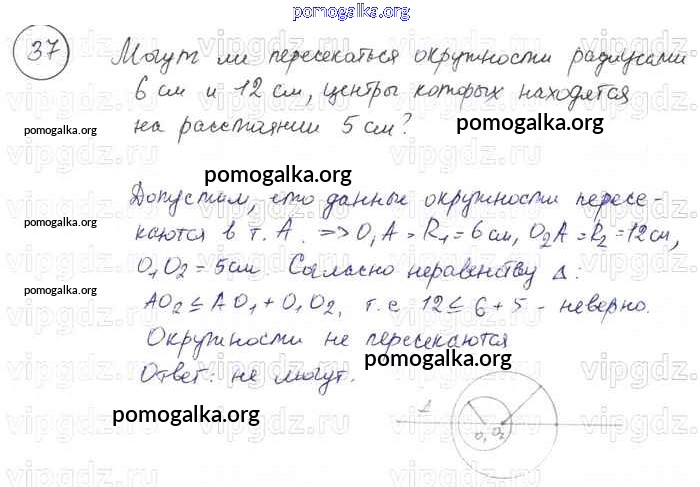 pomogalka.org
37 Могут ли пересекаться окружности радиусами
6 см и 12 см, центры которых находятся
pomogalka.org
на расстоянии 5 см?
pomogalka.org
pomogalka.org
Допустим, что данные окружности пересе-
pomogalka.org
каются в т. A. => O₁A = R₁ = 6 см, O₂A = R₂ = 12 см,
O₁O₂ = 5 см. Согласно неравенству Δ:
pomogalka.org
AO₂ ≤ AO₁ + O₁O₂, т.е 12 ≤ 6 + 5 - неверно.
Окружности не пересекаются
pomogalka.org
Ответ: не могут.
pomogalka.org
O₁ O₂
vipgdz.ru